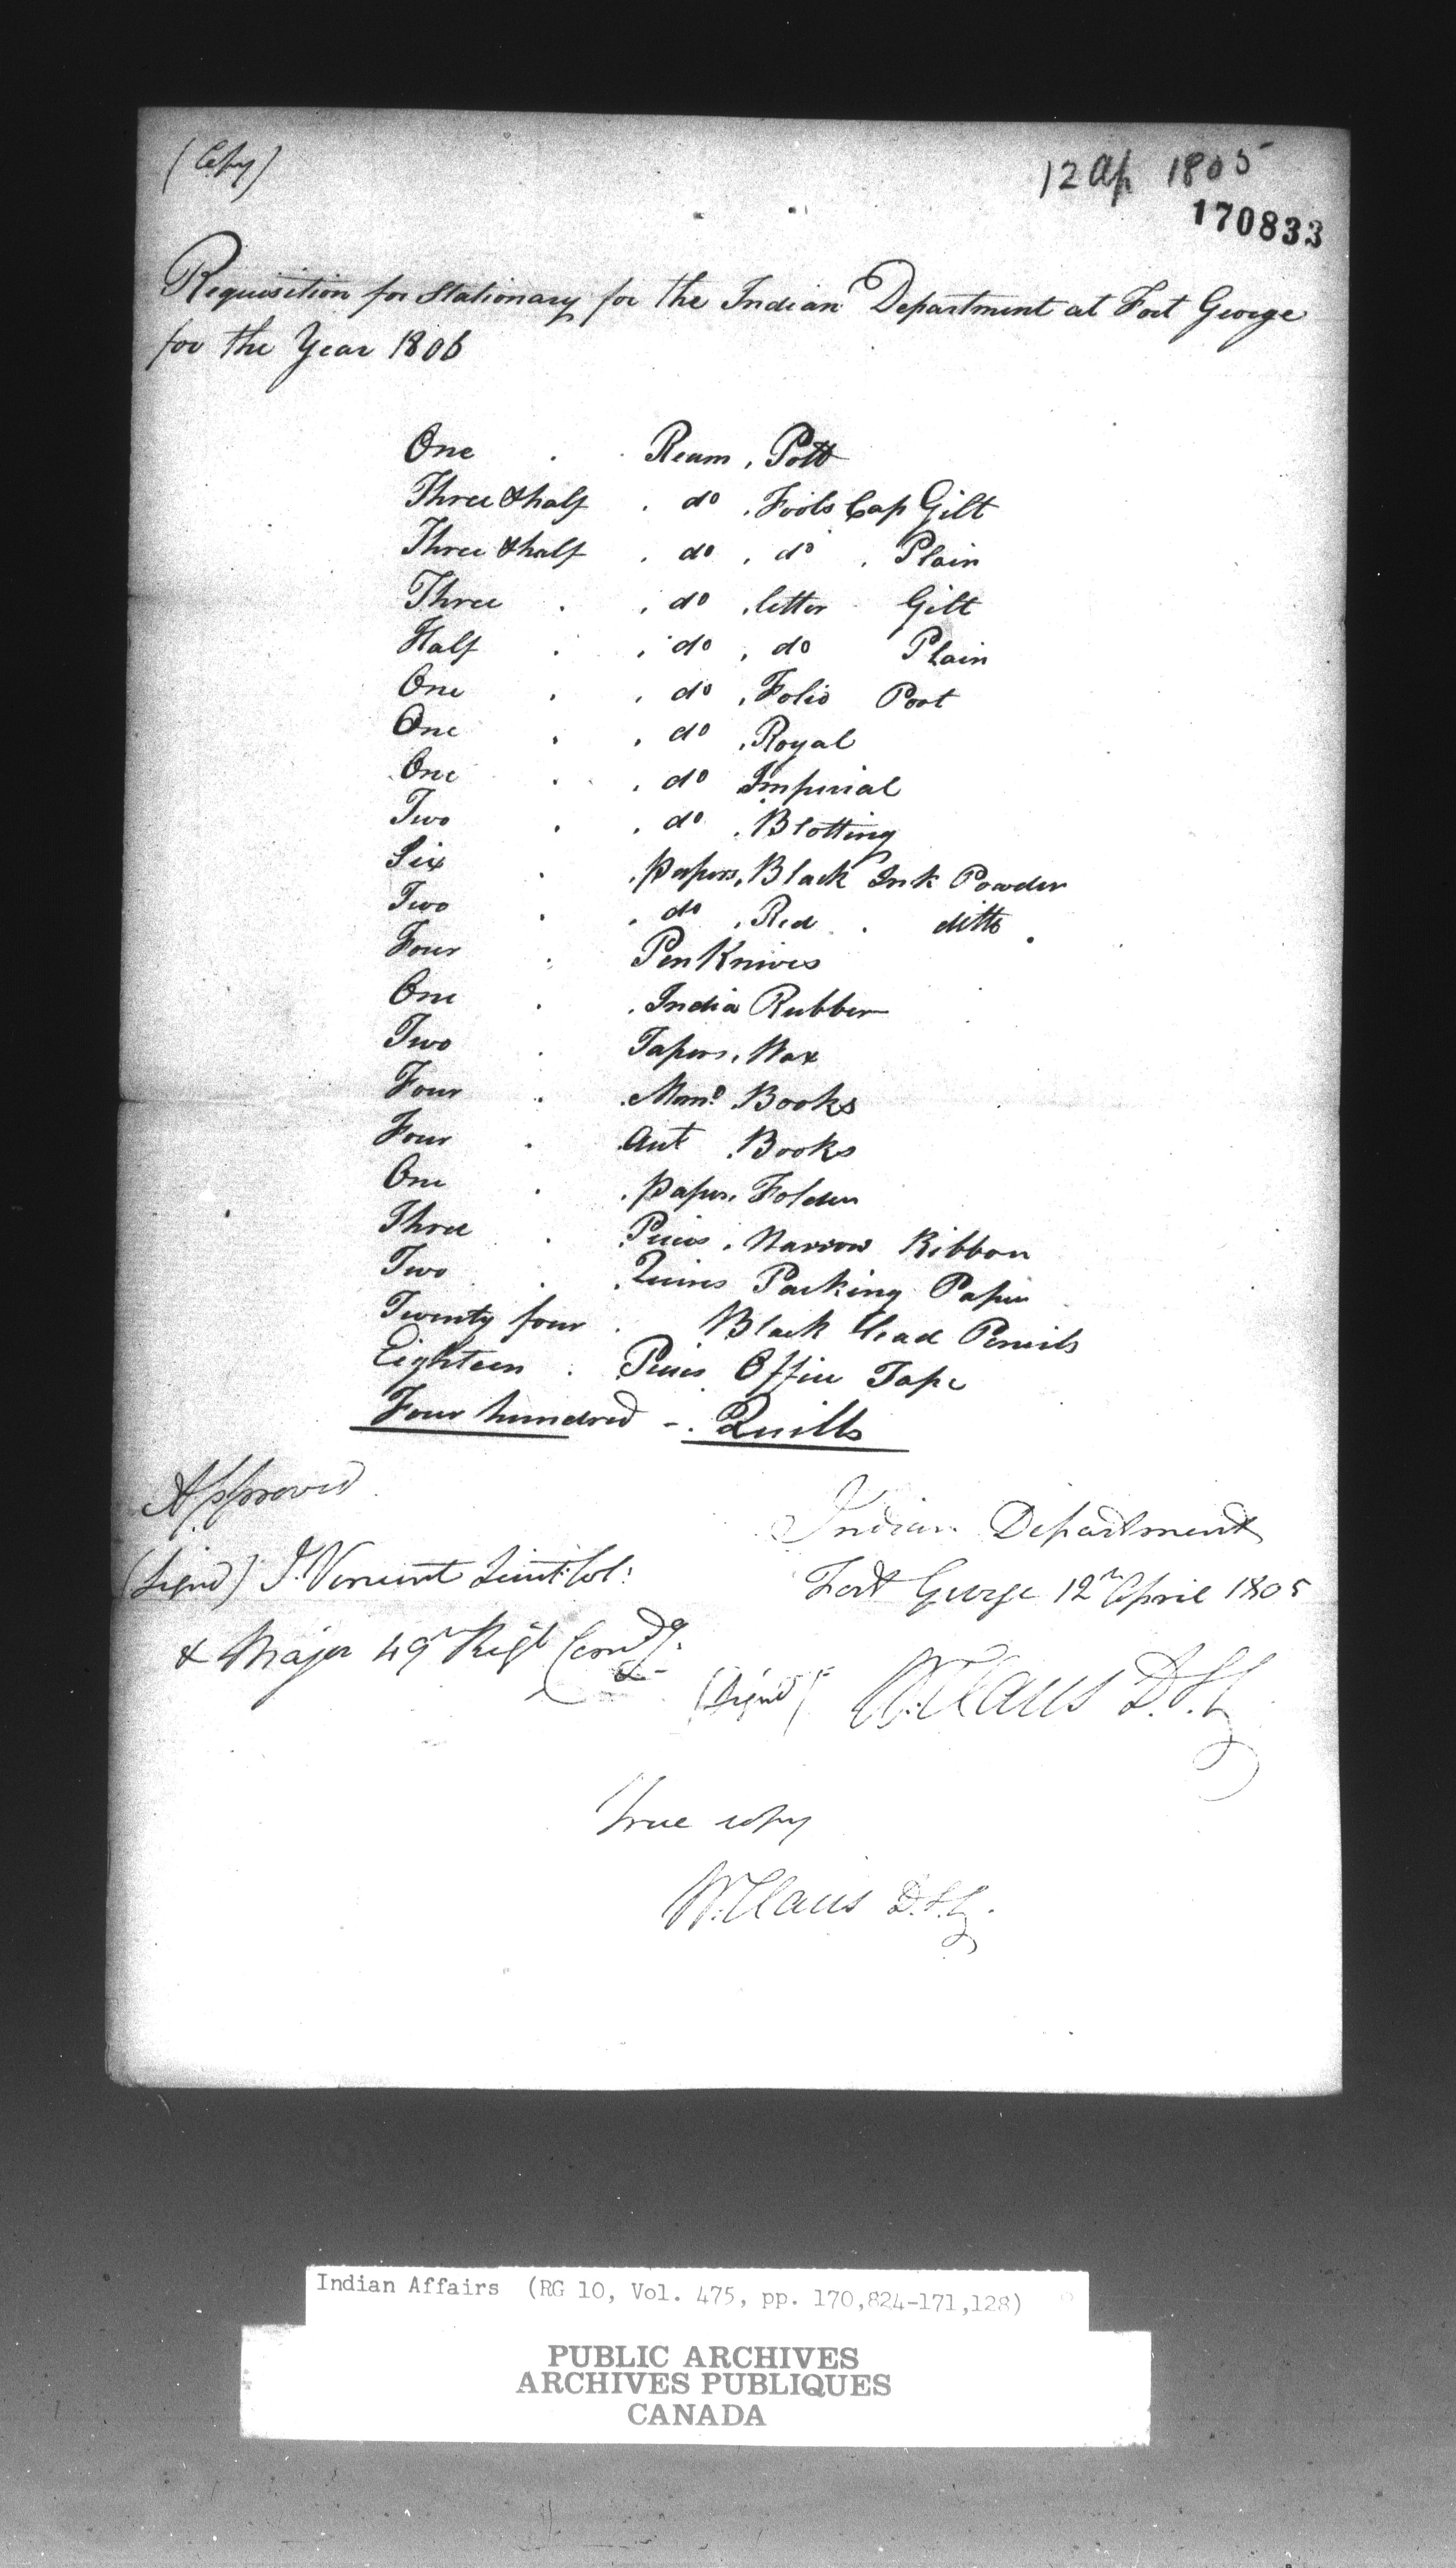 (Copy)
12 Ap 1805
170833
Requisition for Stationary for the Indian Department at Fort George
for the Year 1806
One . . Ream . Pott
Three & half . do . Fools Cap Gilt
Three & half . do . do . Plain
Three . . do . letter Gilt
Half . . do . do Plain
One . . do . Folio Post
One . . do . Royal
One . . do Imperial
Two . . do . Blotting
Six . . papers . Black Ink Powder
Two . . do . Red . ditto .
Four . Pen Knives
One . . India Rubber
Two . Tapers . Wax
Four . . Memo Books
Four . . Books
One . . paper . Folder
Three . Pieces . Narrow Ribbon
Two . . Quires Packing Paper
Twenty four . Black Lead Pencils
Eighteen . Pieces Office Tape
Four hundred - . Quills
Approved
(Signd) J. Vincent Lieut: Col:
& Major 49th Regt Comdg.
Indian Department
Fort George 12th April 1805
(Signd) W. Claus D.S.G
True copy
W. Claus D.S.G.
Indian Affairs (RG 10, Vol. 475, pp. 170,824-171,128)
PUBLIC ARCHIVES
ARCHIVES PUBLIQUES
CANADA